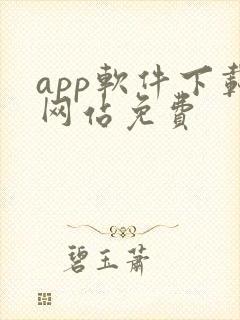 app軟件下載
网站免费
碧玉蕭